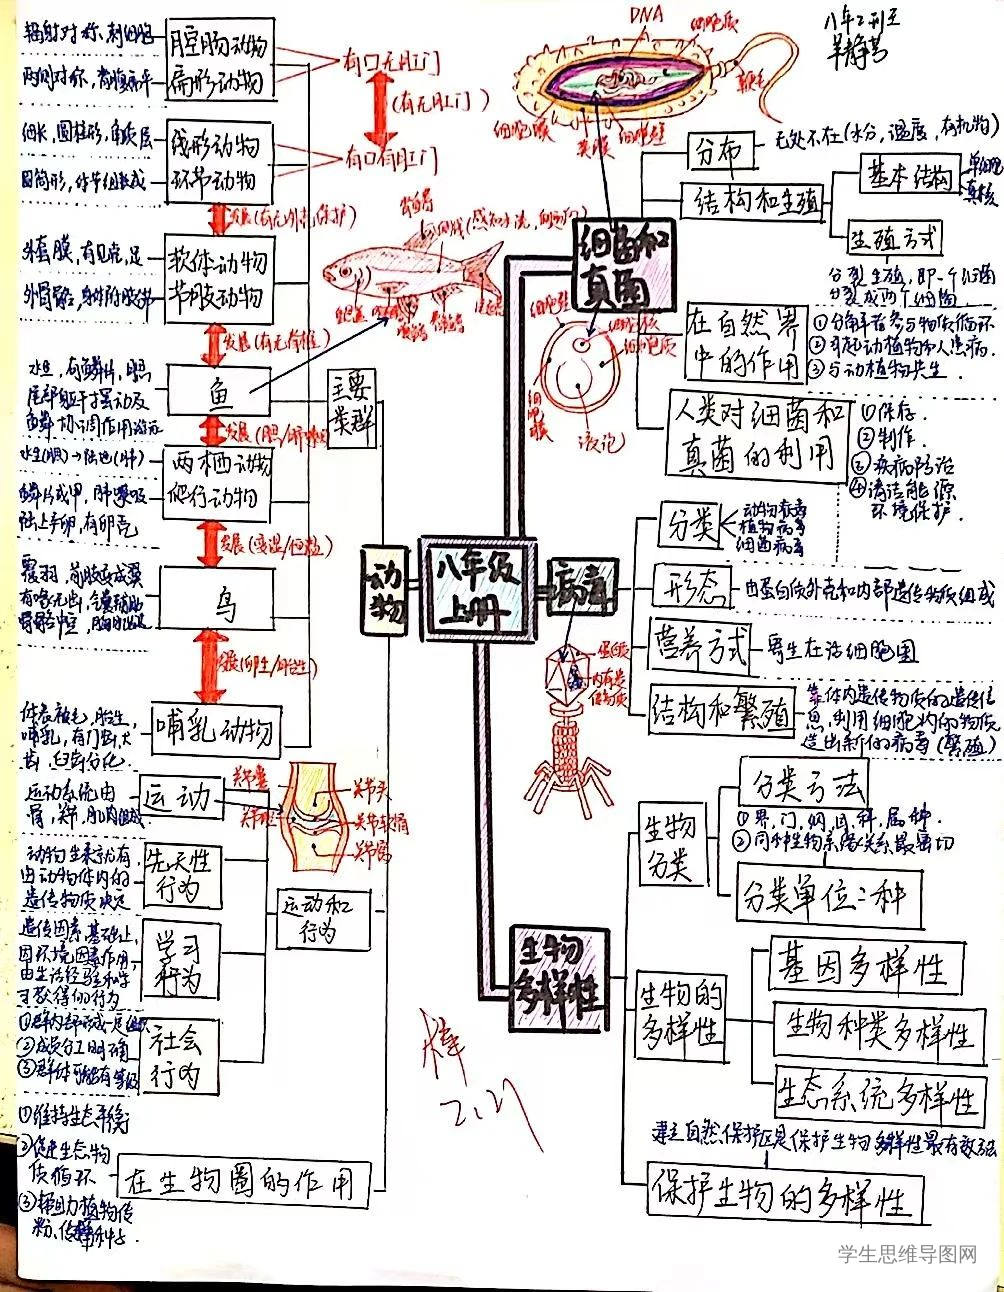 八年级
上册
动物
主要
类群
辐射对称,刺细胞
腔肠动物
两侧对称,背腹扁平
扁形动物
有口无肛门
(有无肛门)
细长,圆柱形,角质层
线形动物
圆筒形,体节组成
环节动物
有口有肛门
发展(有无外壳保护)
外套膜,有贝壳,足
软体动物
节肢动物
发展(有无脊椎)
水生,有鳞片,
尾部躯干摆动及
鱼
发展(
水生(鳃)→陆地(肺)
两栖动物
鳞片或甲,肺呼吸
陆上产卵,有卵壳
爬行动物
发展(变温/恒温)
覆羽,前肢变成翼
鸟
发展(卵生/胎生)
体表被毛,胎生,
哺乳,有门齿犬
齿,臼齿分化.
哺乳动物
侧线(感知水流,
运动和
行为
运动系统由
骨,关节,肌肉组成
运动
关节囊
关节腔
关节头
关节软骨
关节窝
动物生来就有,
由动物体内的
遗传物质决定
先天性
行为
遗传因素基础上,
因环境因素作用,
由生活经验和学
习获得的行为
学习
行为
①群内部形成一定组织
②成员分工明确
③群体可能有等级
社会
行为
①维持生态平衡
②促进生态物
质循环
③帮助植物传
粉、传播种子.
在生物圈的作用
DNA
细胞质
鞭毛
细胞膜
荚膜
细胞壁
细菌和
真菌
分布
无处不在(水分,温度,有机物)
结构和生殖
基本结构
单细胞
真核
生殖方式
分裂生殖,即一个细菌
分裂成两个细菌
在自然界
中的作用
①分解者参与物质循环
②引起动植物和人患病.
③与动植物共生.
人类对细菌和
真菌的利用
①保存.
②制作.
③疾病防治
④清洁能源
环境保护.
细胞壁
细胞核
细胞质
细胞膜
液泡
病毒
分类
动物病毒
植物病毒
细菌病毒
形态
由蛋白质外壳和内部遗传物质组成
营养方式
寄生在活细胞里
结构和繁殖
靠体内遗传物质的遗传信
息,利用细胞内的物质
造出新的病毒(繁殖)
蛋白质
内有遗
传物质
生物
多样性
生物
分类
分类方法
①界,门,纲,目,科,属,种.
②同种生物亲缘关系最密切
分类单位:种
生物的
多样性
基因多样性
生物种类多样性
生态系统多样性
建立自然保护区是保护生物多样性最有效方法
保护生物的多样性
棒
2.21
学生思维导图网